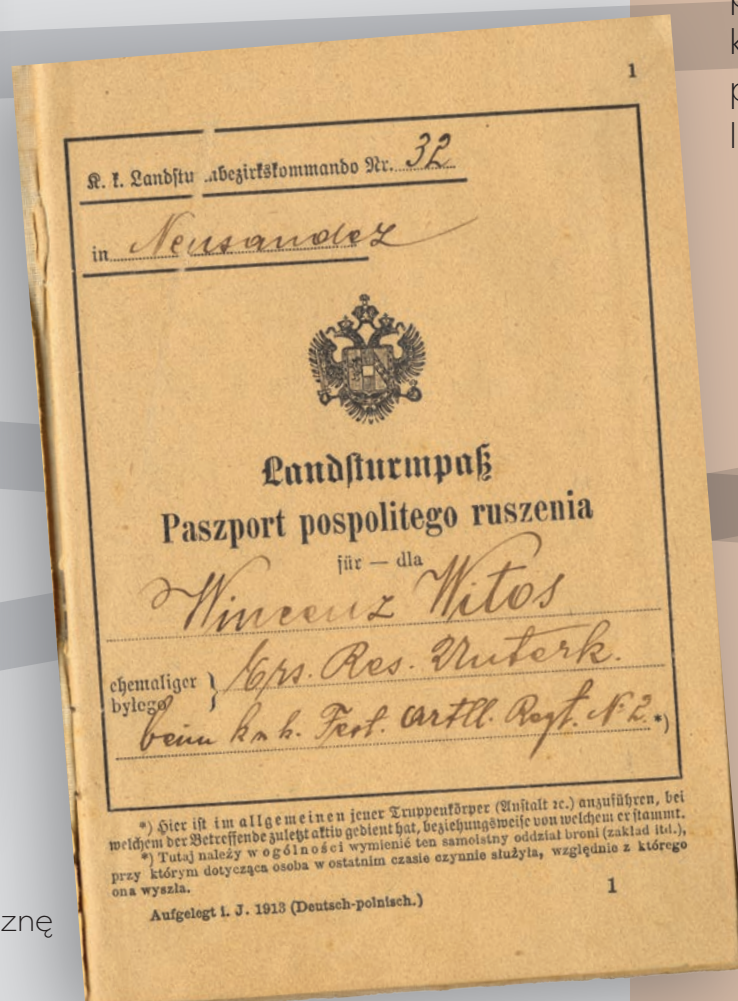 1
K. k. Landstu bezirkskommando Nr. 32
in Neusandez
Landsturmpaß
Paszport pospolitego ruszenia
für — dla
Wincenz Witos
ehemaliger
byłego
Ers. Res. Unterk.
beim k u k. Fest. Artll. Regt. № 2. *)
*) Hier ist im allgemeinen jener Truppenkörper (Anstalt ꝛc.) anzuführen, bei
welchem der Betreffende zuletzt aktiv gedient hat, beziehungsweise von welchem er stammt.
*) Tutaj należy w ogólności wymienić ten samoistny oddział broni (zakład itd.),
przy którym dotycząca osoba w ostatnim czasie czynnie służyła, względnie z którego
ona wyszła.
Aufgelegt i. J. 1913 (Deutsch-polnisch.)
1
znę